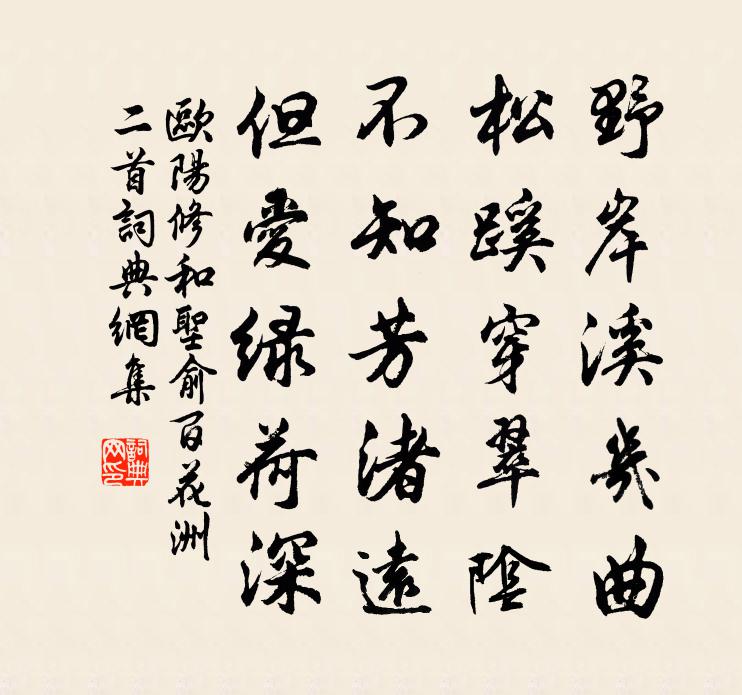 野岸溪幾曲
松蹊穿翠陰
不知芳渚遠
但愛緑荷深
歐陽修和聖俞百花洲
二首詞典網集
詞典網印